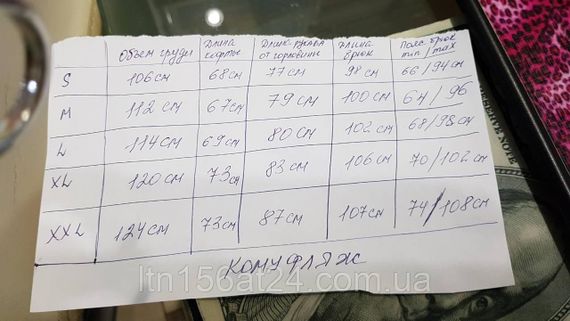 Объем груди Длина кофты Длина рукава от горловины Длина брюк Пояс. брюк min / max
S 106 см 68 см 77 см 98 см 66/94 см
M 112 см 67 см 79 см 100 см 64/96
L 114 см 69 см 80 см 102 см 68/98 см
XL 120 см 73 см 83 см 106 см 70/102 см
XXL 124 см 73 см 87 см 107 см 74/108 см
КОМУФЛЯЖ
ltn156at24.com.ua
NOTE